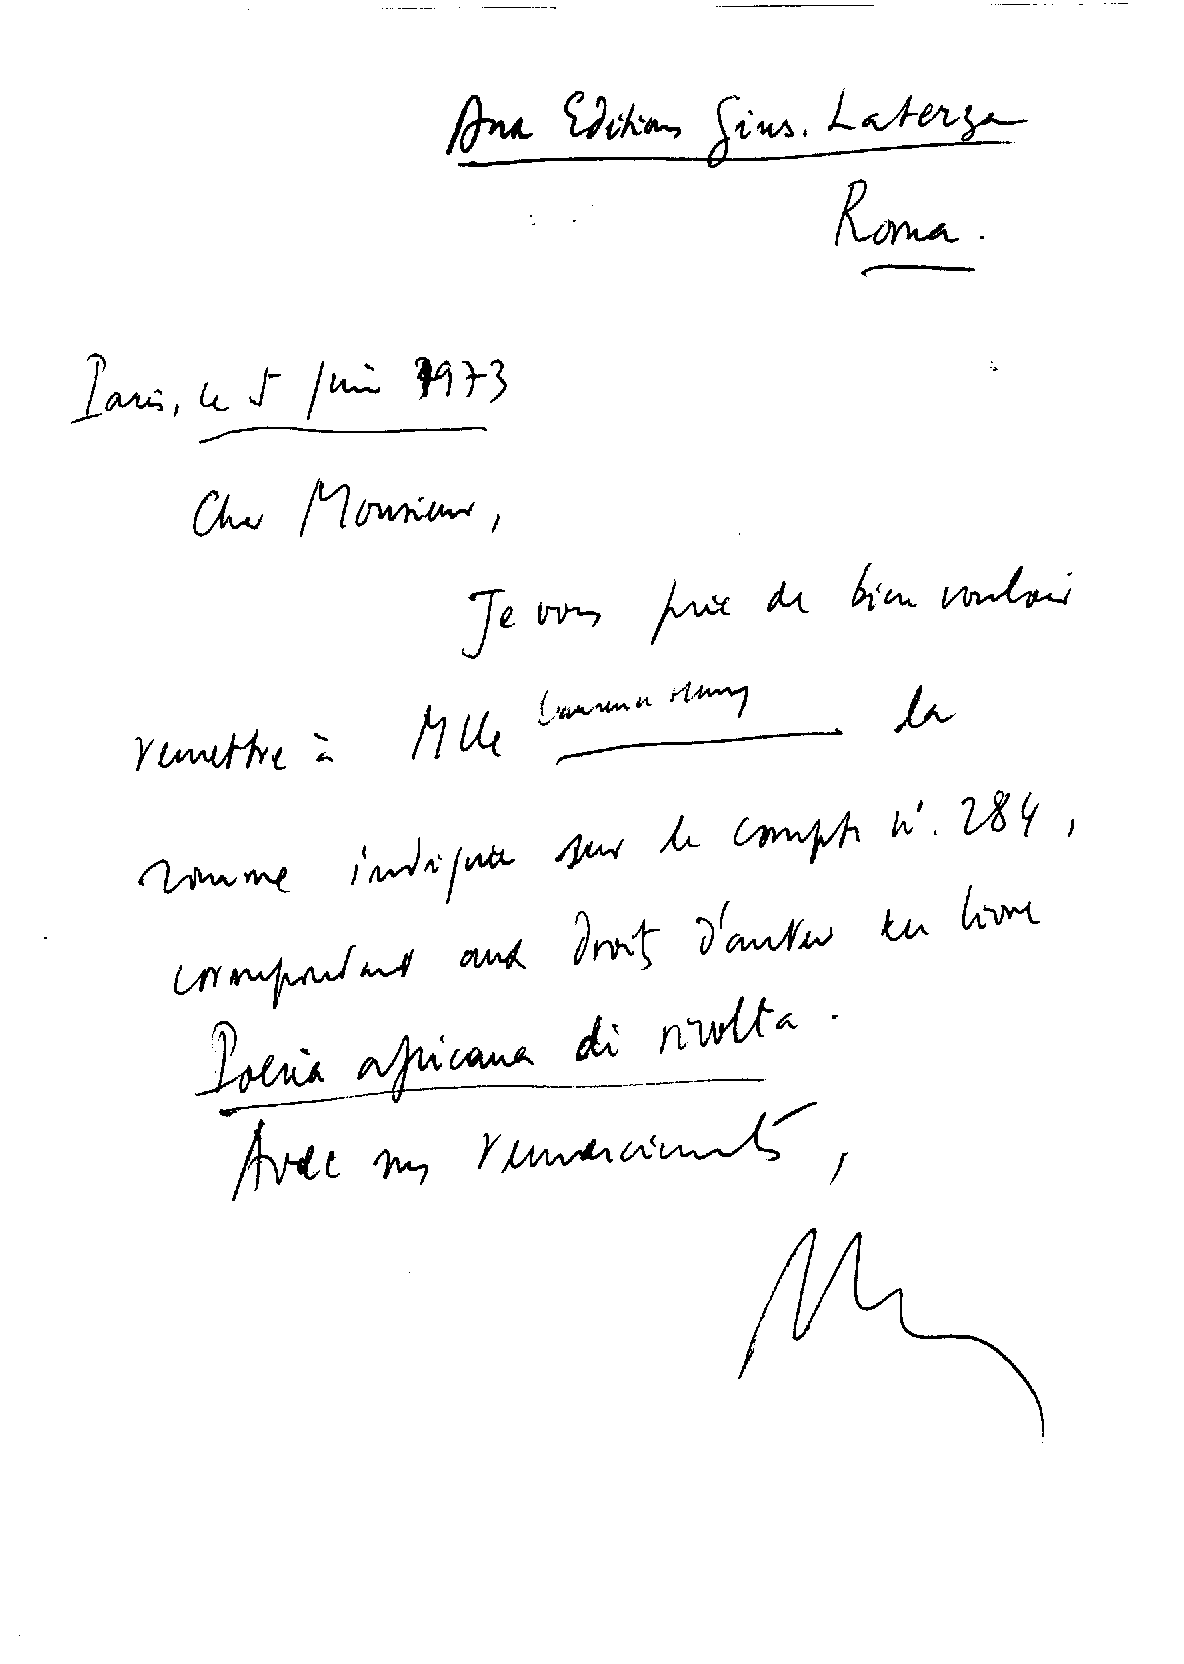 Aux Editions Gius. Laterza
Roma.
Paris, le 5 Juin 1973
Cher Monsieur,
Je vous prie de bien vouloir
remettre à Mlle la
somme indiquée sur le compte n°. 284,
correspondant aux droits d'auteur du livre
Poesia africana di rivolta.
Avec mes remerciements,